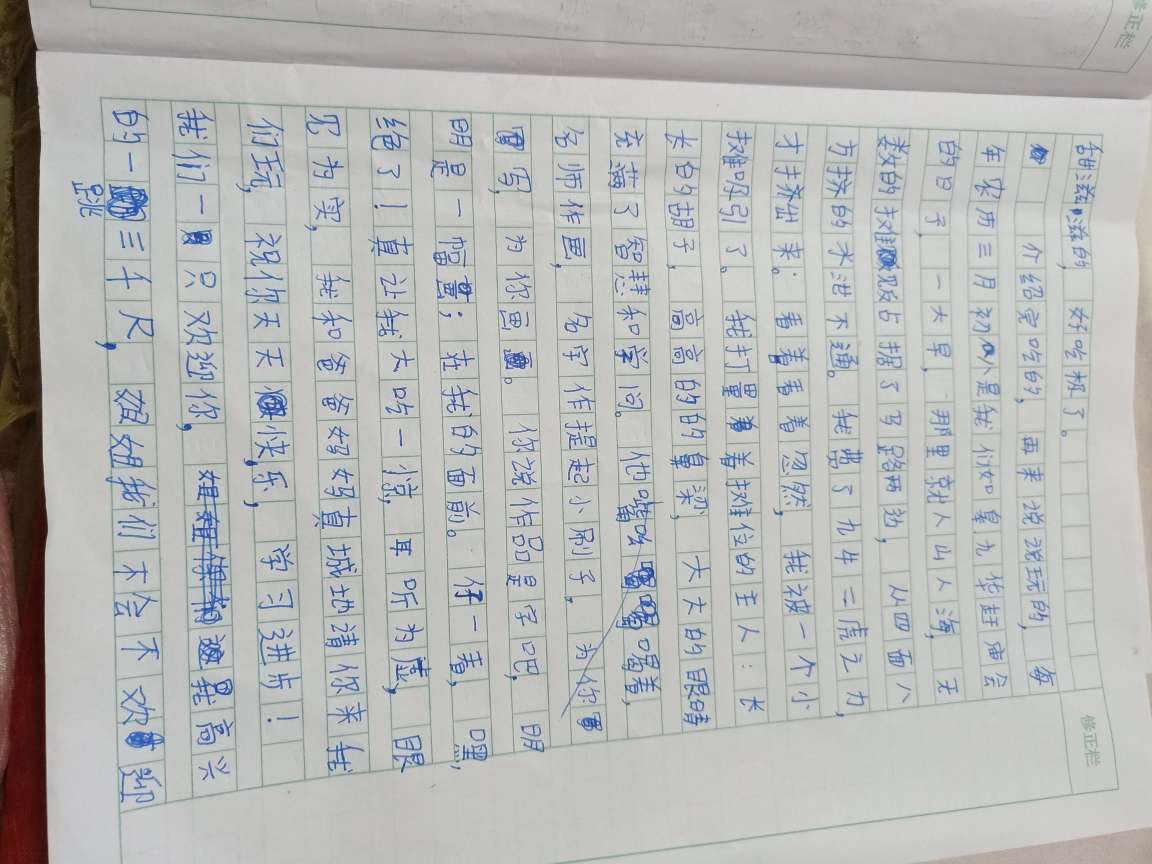 修正栏
甜滋滋的，好吃极了。
介绍完吃的，再来说说玩的，每
年农历三月初八是我们如皋九华赶庙会
的日子，一大早，那里就人山人海，无
数的摊贩占据了马路两边，从四面八
方挤的水泄不通。我费了九牛二虎之力，
才挤出来。看着看着忽然，我被一个小
摊吸引了。我打量着摊位的主人：长
长白的胡子，高高的的鼻梁，大大的眼睛
充满了智慧和学问。他唱着，
名师作画，名字作提起小刷子，为你
写，为你画。你说作品是字吧，明
明是一幅画；在我的面前。仔一看，嘿，
绝了！真让我大吃一惊，耳听为虚，眼
见为实，我和爸爸好好真城地请你来我
们玩，祝你天天快乐，学习进步！
我们一只欢迎你，是高兴
的一跳三千尺，姐姐我们不会不欢迎
修正栏